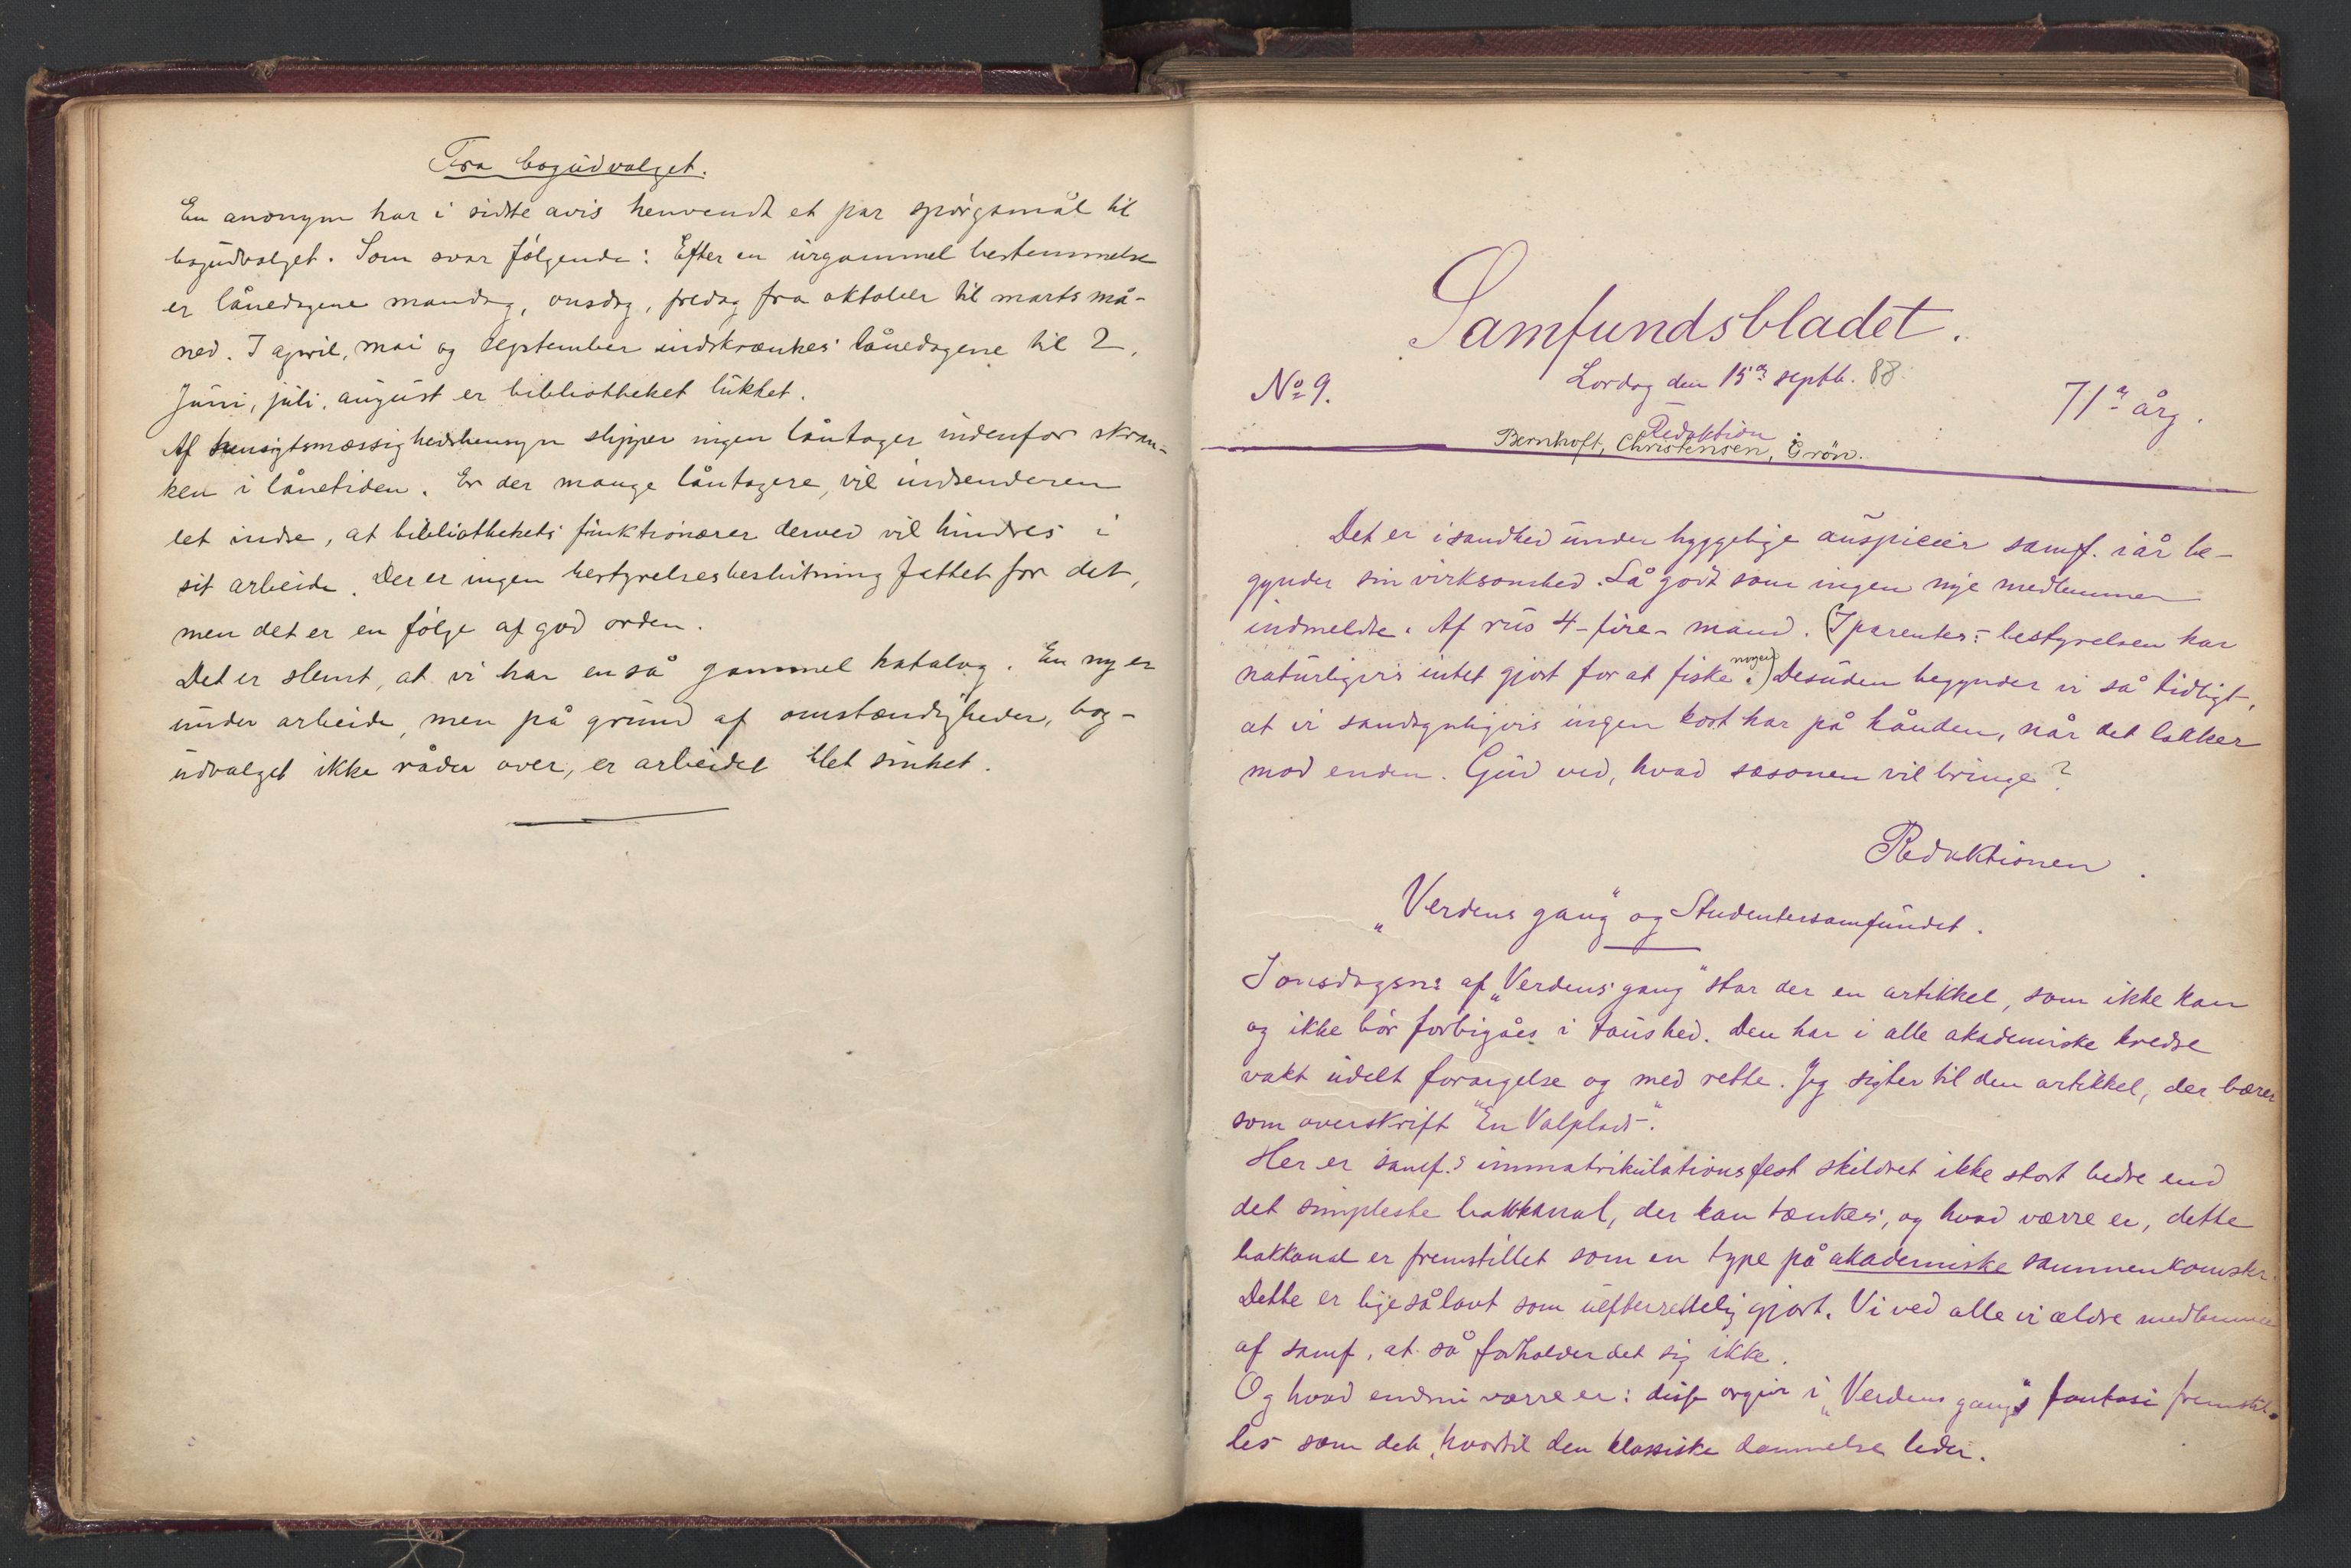 Fra bogudvalget.
En anonym har i sidste avis henvendt et par spörgsmål til
bogudvalget. Som svar fölgende: Efter en urgammel bestemmelse
er lånedagene mandag, onsdag, fredag fra oktober til marts må-
ned. I april, mai og september indskrænkes lånedagene til 2.
Juni, juli, august er bibliotheket lukket.
Af hensigtsmæssighedshensyn slipper ingen låntager indenfor skran-
ken i lånetiden. Er der mange låntagere, vil indsenderen
let indse, at bibliothekets funktionærer derved vil hindres i
sit arbeide. Der er ingen bestyrelsesbeslutning fattet for det,
men det er en fölge af god orden.
Det er slemt, at vi har en så gammel katalog. En ny er
under arbeide, men på grund af omstændigheder, bog-
udvalget ikke råder over, er arbeidet blet sinket.
Samfundsbladet.
Lordag den 15de septb. 88.
No 9.
71de årg.
Redaktion:
Bernhoft, Christensen, Grön.
Det er isandhed under hyggelige auspicier samf. iår be-
gynder sin virksomhed. Så godt som ingen nye medlemmer
indmeldte. Af rus 4-fire- mand. (I parentes: bestyrelsen har
naturligvis intet gjort for at fiske nogen.) Desuden begynder vi så tidligt,
at vi sandsynligvis ingen kost har på hånden, når det lakker
mod enden. Gud ved, hvad sæsonen vil bringe?
Redaktionen.
"Verdens gang" og Studentersamfundet.
I onsdagsnr af "Verdens gang" står der en artikkel, som ikke kan
og ikke bör forbigåes i taushed. Den har i alle akademiske kredse
vakt udelt forargelse og med rette. Jeg sigter til den artikkel, der bærer
som overskrift "En Valplads".
Her er samf.s immatrikulationsfest skildret ikke stort bedre end
det simpleste bakkanal, der kan tænkes, og hvad værre er, dette
bakkanal er fremstillet som en type på akademiske sammenkomster.
Dette er ligeså lavt som uefterrettelig gjort. Vi ved alle vi ældre medlemmer
af samf, at så forholder det sig ikke.
Og hvad endnu værre er: disse orgier i "Verdens gang"s fantasi fremstil-
les som det, hvortil den klassiske dannelse leder.